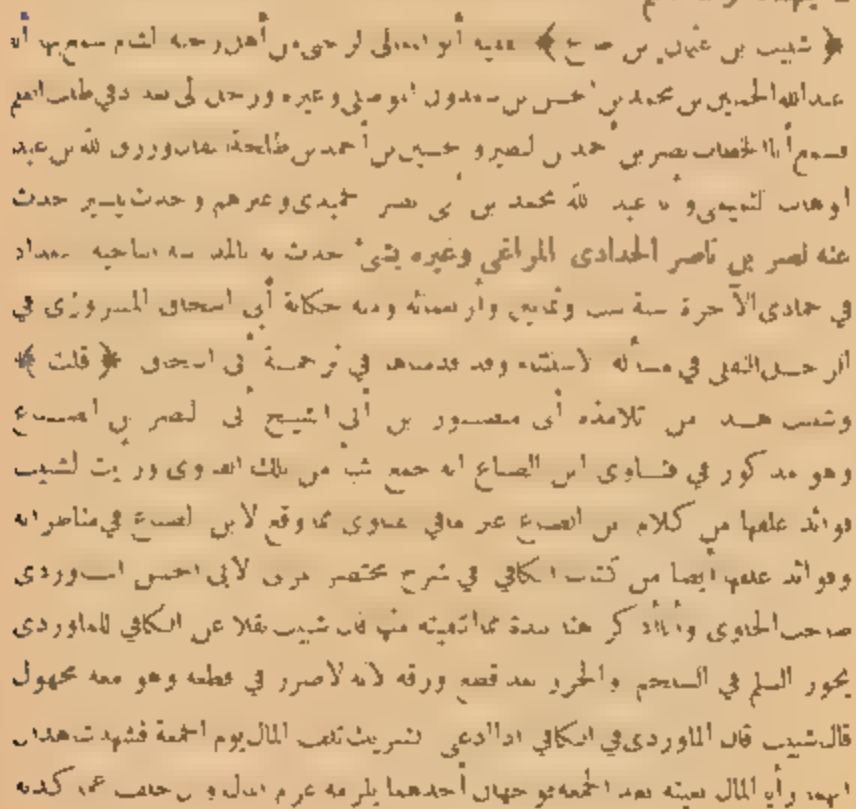 ﴿ شبيب بن عثمان بن صالح ﴾ الفقيه أبو المعالي الرحبي من أهل رحبة الشام سمع بها أبا
عبد الله الحسين بن محمد بن الحسن بن سعدون الموصلي وغيره ورحل الى بغداد في طلب العلم
فسمع أبا الخطاب نصر بن أحمد بن البصير و حسين بن أحمد بن طلحة النعالي ورزق الله بن عبد
الوهاب التميمي وأبا عبد الله محمد بن أبي نصر الحميدي وغيرهم وحدث بيسير حدث
عنه نصر بن ناصر الحدادى المراغى وغيره بشئ حدث به بالمدرسة التاجية ببغداد
في جمادى الآخرة سنة ست وثمانين وأربعمائة ومنه حكاية أبى اسحاق المروزى في
الرجل في مسألة الاستثناء وقد قدمناها في ترجمة أبى اسحاق ﴿ قلت ﴾
وشبيب هذا من تلامذة أبى منصور بن أخى الشيخ أبى نصر بن الصباغ
وهو مذكور في فتاوى ابن الصباغ انه جمع شيأ من تلك الفتاوى ورأيت لشبيب
فوائد علقها من كلام ابن الصباغ غير مافى الفتاوى مما وقع لابن الصباغ في مناظراته
وفوائد علقها أيضا من كتاب الكافي في شرح مختصر المزنى لأبى الحسن الماوردى
صاحب الحاوى وأنا أذكر هنا نبذة مما انتقيته منها قال شبيب نقلا عن الكافي للماوردى
يجوز السلم في السلجم والجزر بعد قطع ورقه لأنه لاضرر في قطعه وهو معه مجهول
قال شبيب قال الماوردى في الكافي اذا ادعى الشريك تلف المال يوم الجمعة فشهدت
انهما رأيا المال بعينه بعد الجمعة فوجهان أحدهما يلزمه غرم المال و